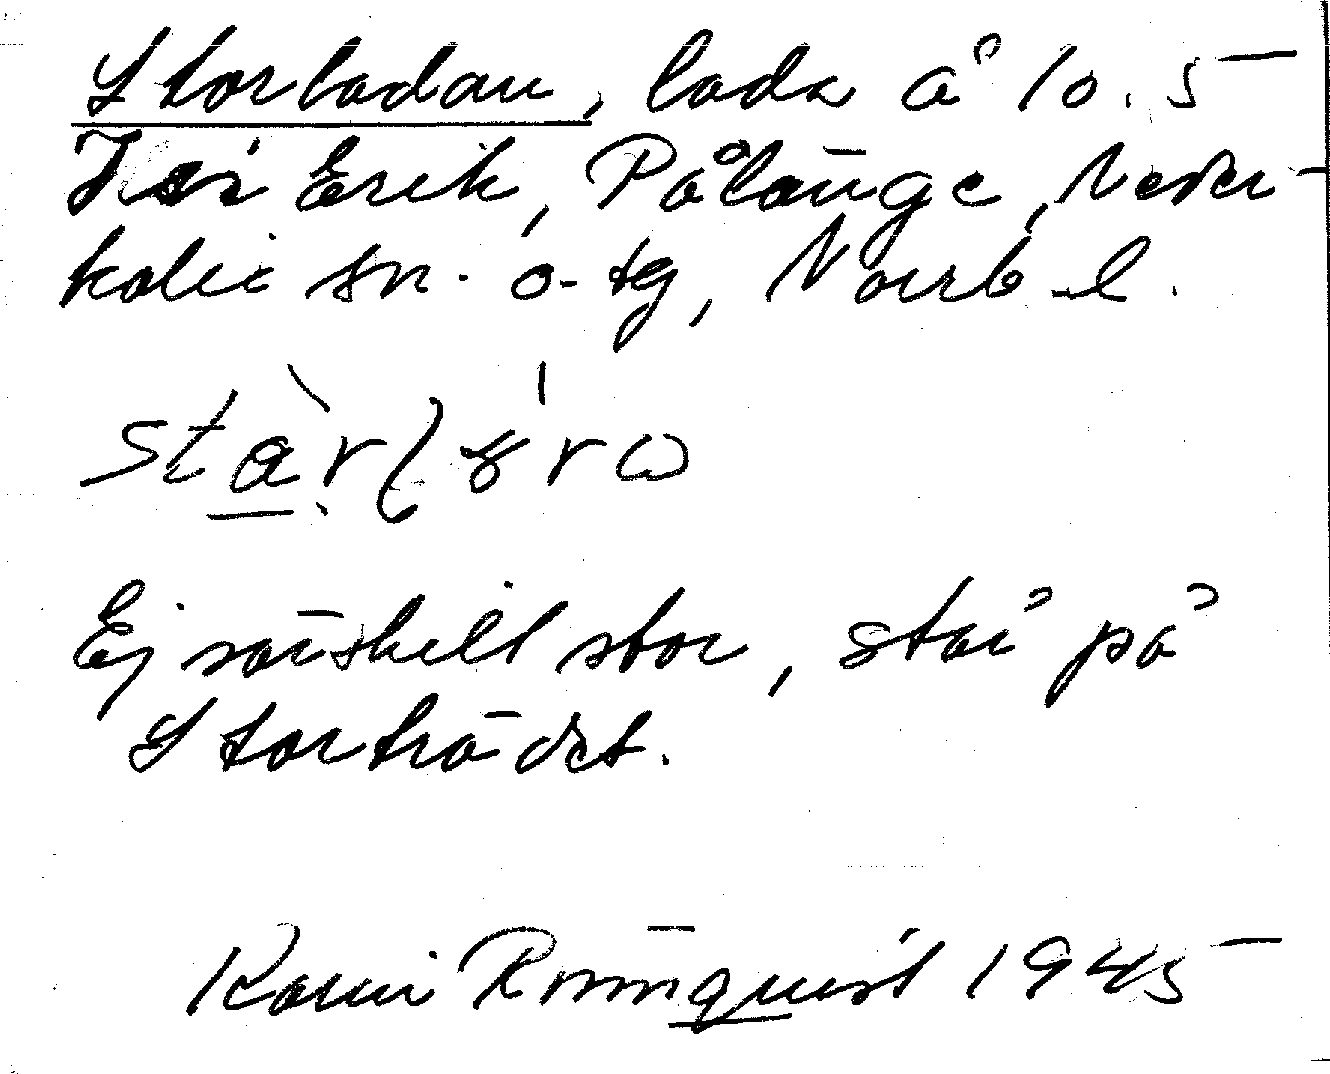 Storladan, lada å 10.5
Erik, Pålänge, Neder-
kalix sn. o. tg, Norrb. l.
Ej särskilt stor, står på
Storträdet.
Karin Rönnquist 1945